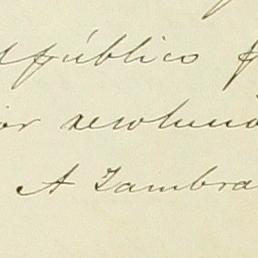 público
or resoluci
A Zambra